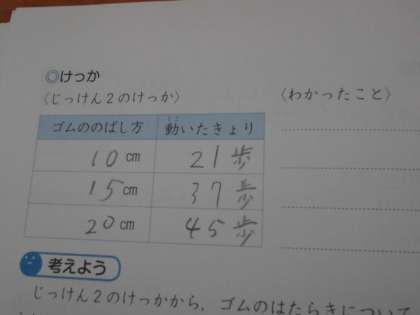 ◎けっか
〈じっけん2のけっか〉
〈わかったこと〉
ゴムののばし方 動いたきょり
10cm 21歩
15cm 37歩
20cm 45歩
考えよう
じっけん2のけっかから、ゴムのはたらきについて